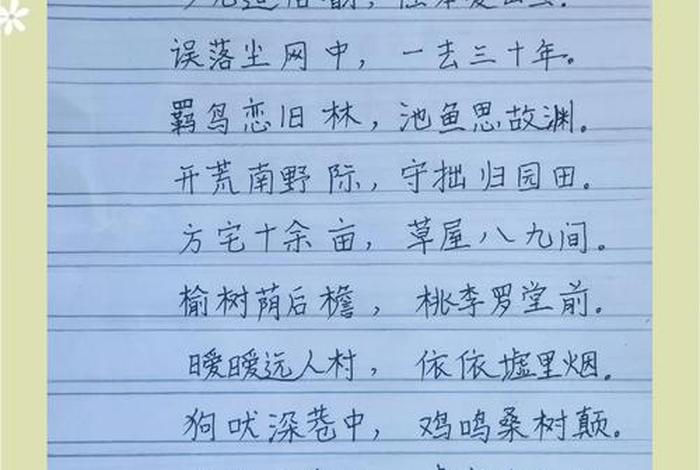 误落尘网中，一去三十年。
羁鸟恋旧林，池鱼思故渊。
开荒南野际，守拙归园田。
方宅十余亩，草屋八九间。
榆树荫后檐，桃李罗堂前。
暧暧远人村，依依墟里烟。
狗吠深巷中，鸡鸣桑树颠。